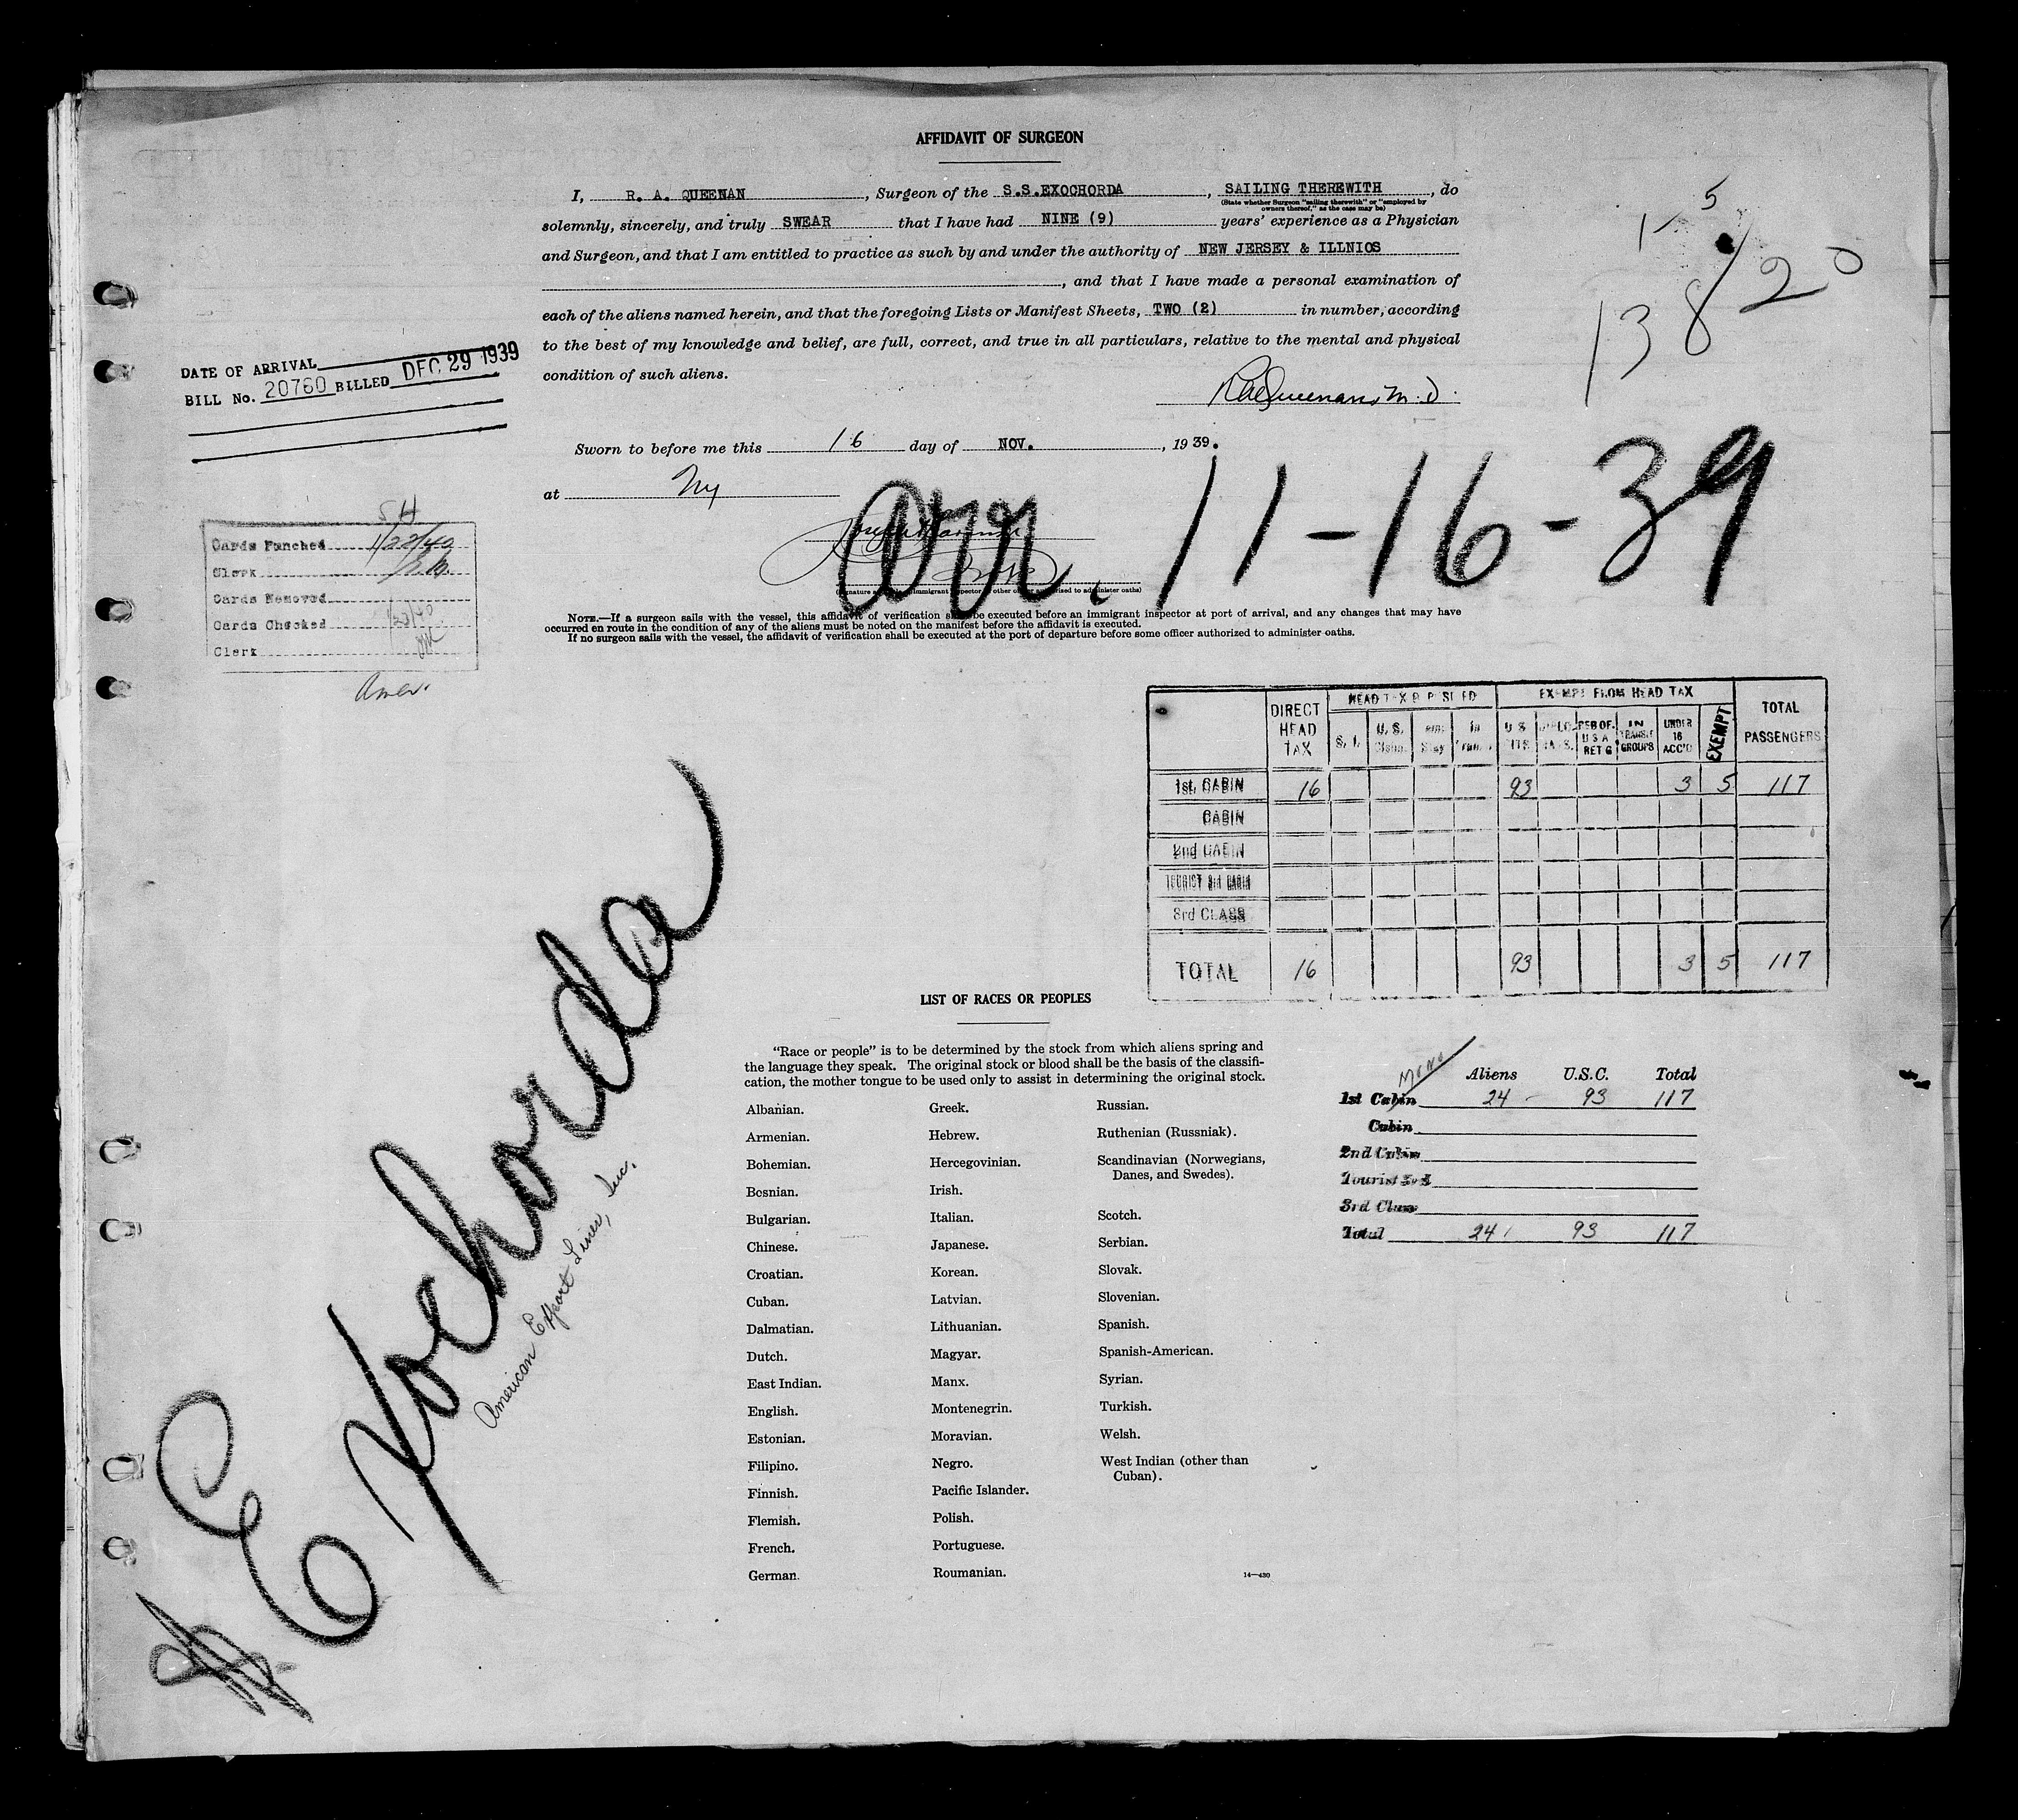 AFFIDAVIT OF SURGEON
I, R. A. QUEENAN, Surgeon of the S.S.EXOCHORDA, SAILING THEREWITH, do
(State whether Surgeon "sailing therewith" or "employed by
owners thereof," as the case may be)
solemnly, sincerely, and truly SWEAR that I have had NINE (9) years' experience as a Physician
and Surgeon, and that I am entitled to practice as such by and under the authority of NEW JERSEY & ILLNIOS
, and that I have made a personal examination of
each of the aliens named herein, and that the foregoing Lists or Manifest Sheets, TWO (2) in number, according
to the best of my knowledge and belief, are full, correct, and true in all particulars, relative to the mental and physical
condition of such aliens.
RAQueenan M.D.
Sworn to before me this 16 day of NOV., 19 39.
at Ny
arr. 11-16-39
5
1
138/20
DATE OF ARRIVAL
BILL No. 20760 BILLED DEC 29 1939
SH
Cards Punched 1/22/40
Clerk
Cards Removed
Cards Checked
Clerk
Amer.
NOTE.—If a surgeon sails with the vessel, this affidavit of verification shall be executed before an immigrant inspector at port of arrival, and any changes that may have
occurred en route in the condition of any of the aliens must be noted on the manifest before the affidavit is executed.
If no surgeon sails with the vessel, the affidavit of verification shall be executed at the port of departure before some officer authorized to administer oaths.
DIRECT HEAD TAX
HEAD TAX DEPOSITED
S. I.
U. S.
EXEMPT FROM HEAD TAX
U S CITS
IN TRANSIT GROUPS
UNDER 16 ACC'D
EXEMPT
TOTAL PASSENGERS
1st CABIN 16 93 3 5 117
CABIN
2nd CABIN
TOURIST 3rd CABIN
3rd CLASS
TOTAL 16 93 3 5 117
Exochorda
American Export Lines, Inc.
LIST OF RACES OR PEOPLES
"Race or people" is to be determined by the stock from which aliens spring and
the language they speak. The original stock or blood shall be the basis of the classifi-
cation, the mother tongue to be used only to assist in determining the original stock.
Albanian.
Armenian.
Bohemian.
Bosnian.
Bulgarian.
Chinese.
Croatian.
Cuban.
Dalmatian.
Dutch.
East Indian.
English.
Estonian.
Filipino.
Finnish.
Flemish.
French.
German.
Greek.
Hebrew.
Hercegovinian.
Irish.
Italian.
Japanese.
Korean.
Latvian.
Lithuanian.
Magyar.
Manx.
Montenegrin.
Moravian.
Negro.
Pacific Islander.
Polish.
Portuguese.
Roumanian.
Russian.
Ruthenian (Russniak).
Scandinavian (Norwegians,
Danes, and Swedes).
Scotch.
Serbian.
Slovak.
Slovenian.
Spanish.
Spanish-American.
Syrian.
Turkish.
Welsh.
West Indian (other than
Cuban).
14—430
Aliens U.S.C. Total
1st Cabin 24 - 93 117
Cabin
2nd Cabin
Tourist 3rd
3rd Class
Total 24 93 117